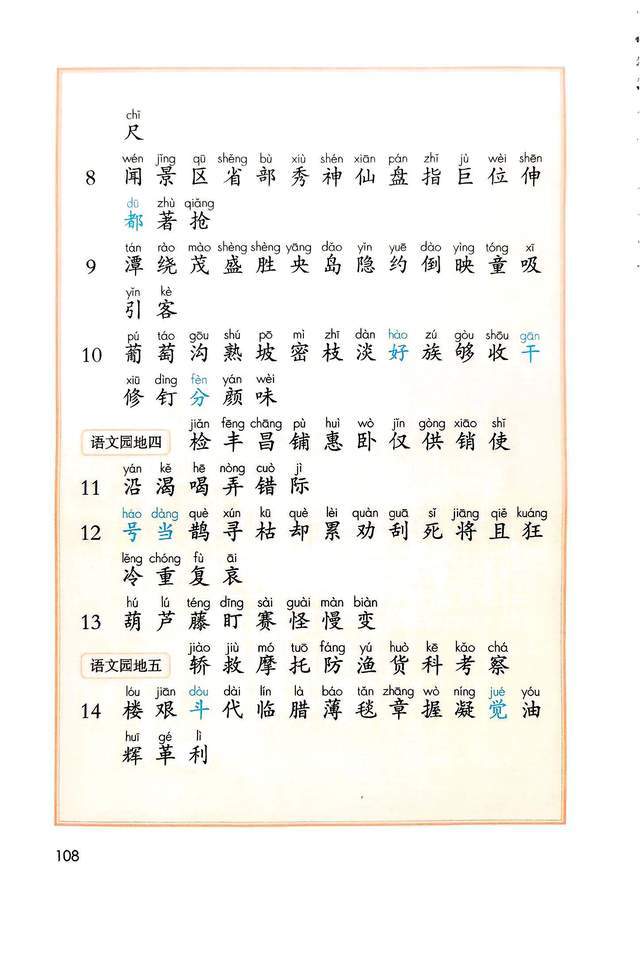 chǐ
尺
wén jǐng qū shěng bù xiù shén xiān pán zhǐ jù wèi shēn
8 闻 景 区 省 部 秀 神 仙 盘 指 巨 位 伸
dū zhù qiǎng
都 著 抢
tán rào mào shèng shèng yāng dǎo yǐn yuē dào yìng tóng xī
9 潭 绕 茂 盛 胜 央 岛 隐 约 倒 映 童 吸
yǐn kè
引 客
pú táo gōu shú pō mì zhī dàn hào zú gòu shōu gān
10 葡 萄 沟 熟 坡 密 枝 淡 好 族 够 收 干
xiū dìng fèn yán wèi
修 钉 分 颜 味
jiǎn fēng chāng pù huì wò jǐn gòng xiāo shǐ
语文园地四 检 丰 昌 铺 惠 卧 仅 供 销 使
yán kě hē nòng cuò jì
11 沿 渴 喝 弄 错 际
háo dàng què xún kū què lèi quàn guā sǐ jiāng qiě kuáng
12 号 当 鹊 寻 枯 却 累 劝 刮 死 将 且 狂
lěng chóng fù āi
冷 重 复 哀
hú lú téng dīng sài guài màn biàn
13 葫 芦 藤 盯 赛 怪 慢 变
jiào jiù mó tuō fáng yú huò kē kǎo chá
语文园地五 轿 救 摩 托 防 渔 货 科 考 察
lóu jiān dòu dài lín là báo tǎn zhāng wò níng jué yóu
14 楼 艰 斗 代 临 腊 薄 毯 章 握 凝 觉 油
huī gé lì
辉 革 利
108